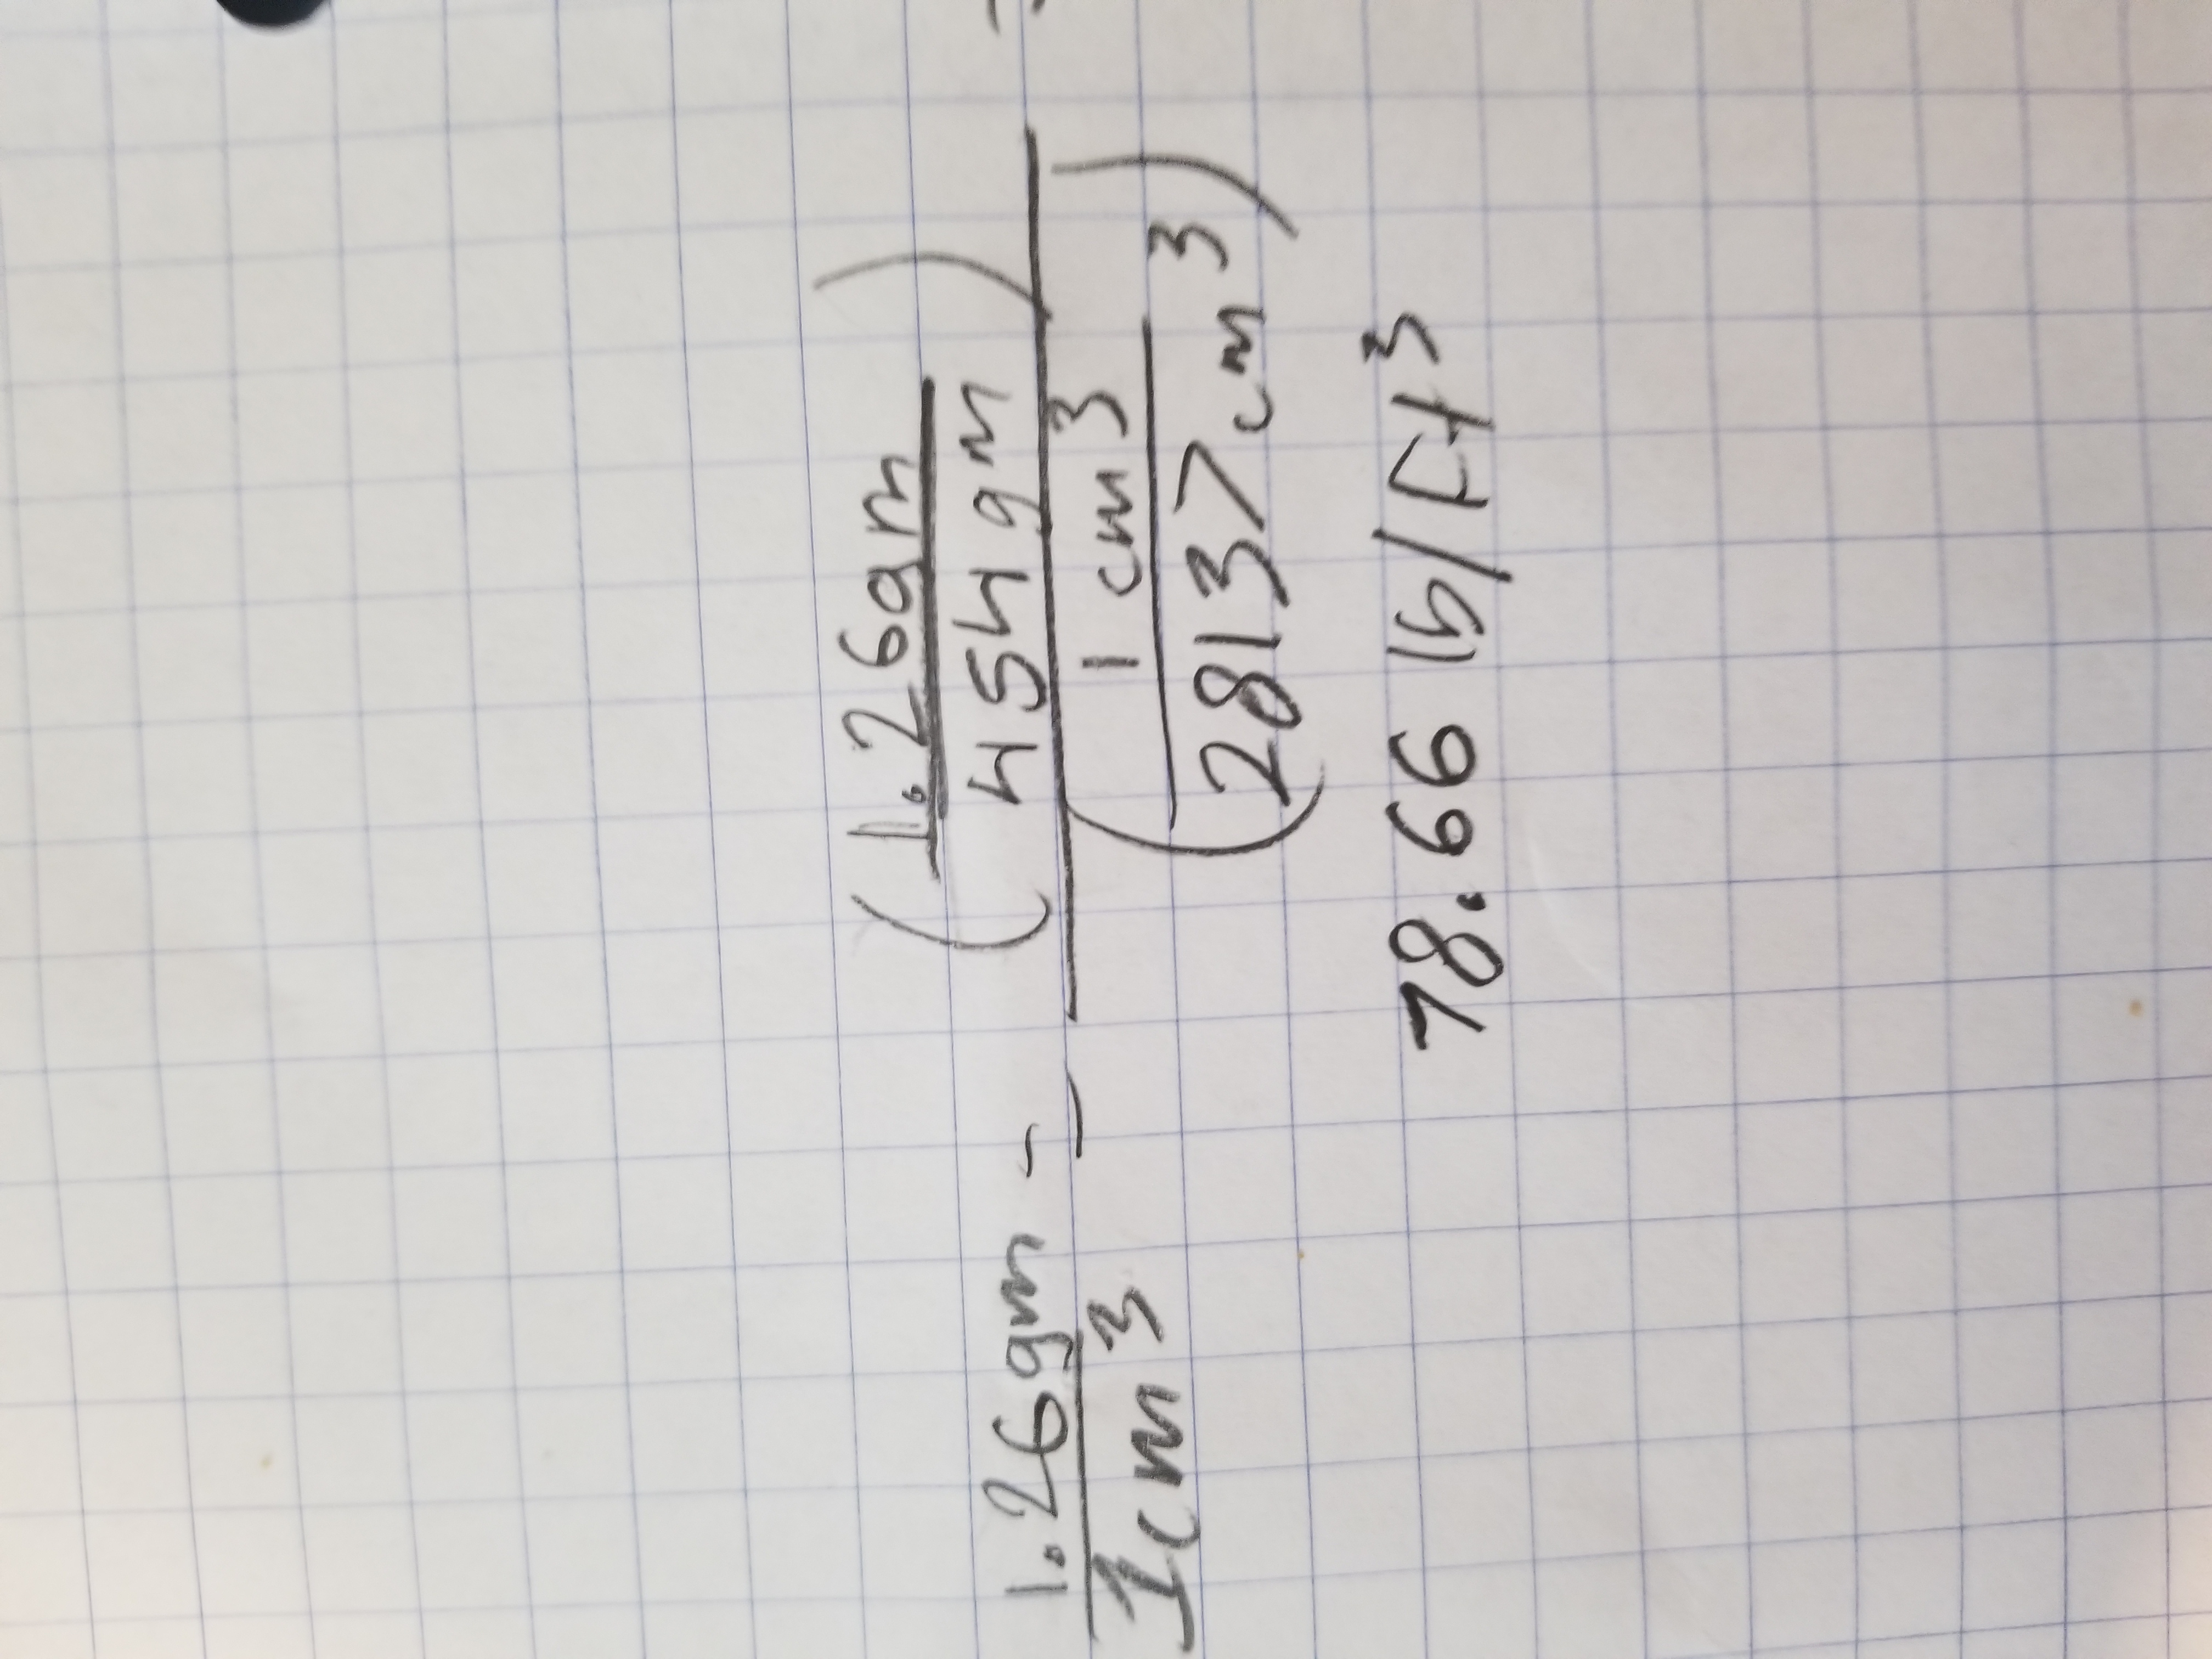 1.26gm = (1.26gm / 454gm) =
1cm³ (1cm³ / 28137cm³)
78.66 lb/ft³